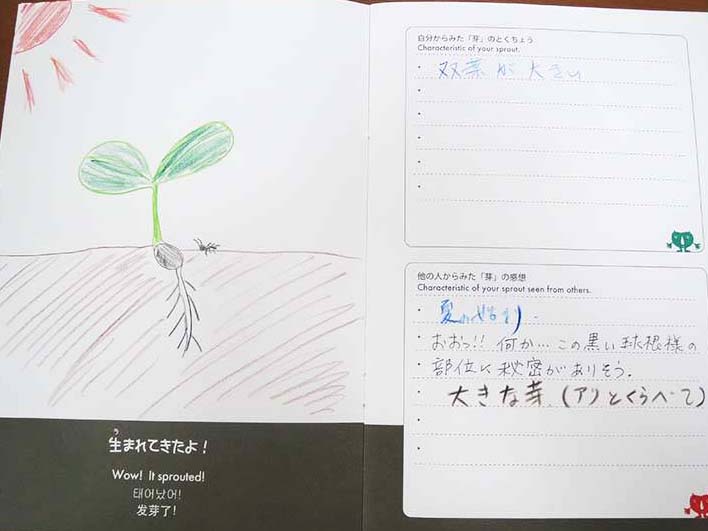 生まれてきたよ！
う
Wow! It sprouted!
태어났어!
发芽了!
自分からみた「芽」のとくちょう
Characteristic of your sprout.
・ 双葉が大きい
他の人からみた「芽」の感想
Characteristic of your sprout seen from others.
・ 夏の始まり.
・ おおっ!! 何か… この黒い球根様の
・ 部位に秘密がありそう.
・ 大きな芽.(アリとくらべて)